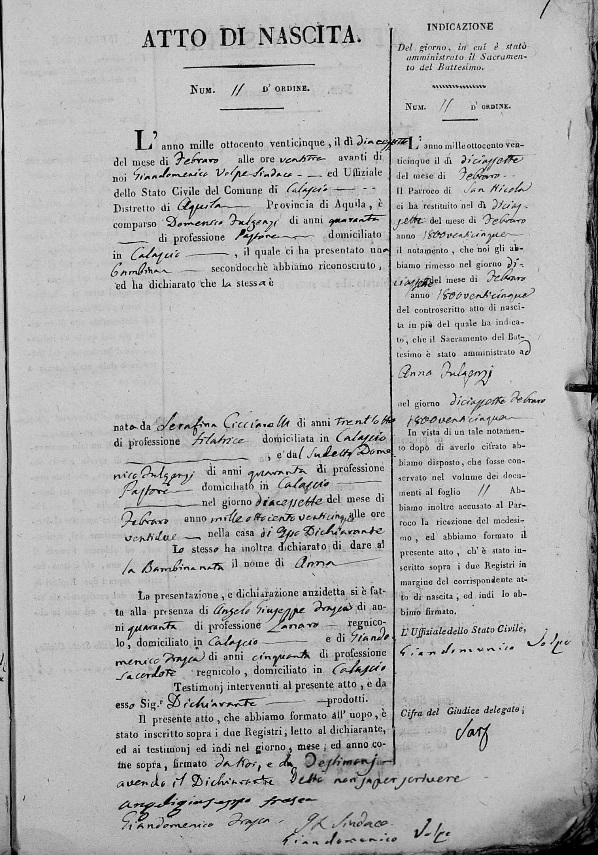 ATTO DI NASCITA.
NUM. 11 D'ORDINE.
L'anno mille ottocento venticinque, il dì diacessette
del mese di Febraro alle ore ventitre avanti di
noi Giandomenico Volpe Sindaco ed Uffiziale
dello Stato Civile del Comune di Calascio
Distretto di Aquila Provincia di Aquila, è
comparso Domenico Fulgenzj di anni quaranta
di professione Pastore domiciliato
in Calascio, il quale ci ha presentato una
Bambina secondochè abbiamo riconosciuto,
ed ha dichiarato che la stessa è
nata da Serafina Cicciarelli di anni trentotto
di professione filatrice domiciliata in Calascio
, e dal sudetto Dome
nico Fulgenzj di anni quaranta di professione
Pastore domiciliato in Calascio
nel giorno diacessette del mese di
Febraro anno mille ottocento venticinque alle ore
ventidue nella casa di esso Dichiarante
Lo stesso ha inoltre dichiarato di dare al
la Bambina nata il nome di Anna
La presentazione, e dichiarazione anzidetta si è fat-
ta alla presenza di Angelo Giuseppe Frasca di an-
ni quaranta di professione Lanaro regnico-
lo, domiciliato in Calascio e di Giando
menico Frasca di anni cinquanta di professione
sacerdote regnicolo, domiciliato in Calascio
Testimonj intervenuti al presente atto, e da
esso Sig.r Dichiarante prodotti.
Il presente atto, che abbiamo formato all'uopo, è
stato inscritto sopra i due Registri, letto al dichiarante,
ed ai testimonj ed indi nel giorno, mese, ed anno co-
me sopra, firmato da Noi, e da Testimonj
avendo il Dichiarante detto non saper scrivere
Angeligiuseppo frasca
Giandomenico Frasca
Il Sindaco
Giandomenico Volpe
INDICAZIONE
Del giorno, in cui è stato
amministrato il Sacramen-
to del Battesimo.
NUM. 11 D'ORDINE.
L'anno mille ottocento ven-
ticinque il dì diciassette
del mese di Febraro
Il Parroco di San Nicola
ci ha restituito nel dì dicias
sette del mese di Febraro
anno 1800venticinque
il notamento, che noi gli ab-
biamo rimesso nel giorno di-
ciassette del mese di Febraro
anno 1800venticinque
del controscritto atto di nasci-
ta in piè del quale ha indica-
to, che il Sacramento del Bat-
tesimo è stato amministrato ad
Anna Fulgenzj
nel giorno diciassette Febraro
1800venticinque
In vista di un tale notamento
dopo di averlo cifrato abbia-
mo disposto, che fosse con-
servato nel volume dei docu-
menti al foglio 11 Ab-
biamo inoltre accusato al Par-
roco la ricezione del medesi-
mo, ed abbiamo formato il
presente atto, ch'è stato in-
scritto sopra i due Registri in
margine del corrispondente at-
to di nascita, ed indi lo ab-
biamo firmato.
L'Uffiziale dello Stato Civile,
Giandomenico Volpe
Cifra del Giudice delegato;